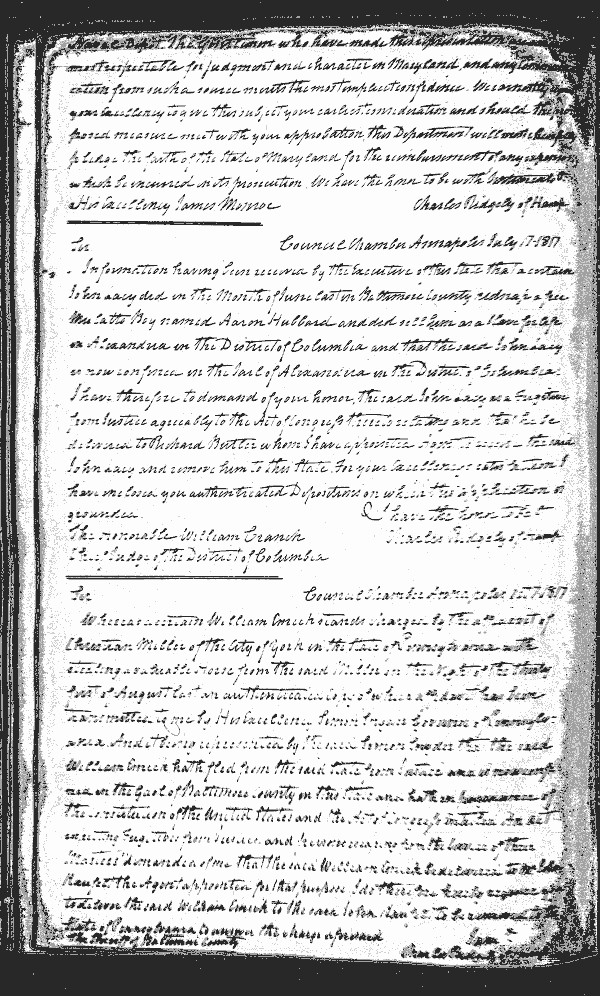 Depot. The Gentlemen who have made this representation
most respectable for judgment and character in Maryland, and any
cation from such a source merits the most implicit confidence. We earnestly
your Excellency to give this subject your earliest consideration and should the pro
posed measure meet with your approbation this Department will most
pledge the faith of the State of Maryland for the reimbursement of any expense
which be incurred in its prosecution. We have the honor to be with
His Excellency James Monroe Charles Ridgely of Hamp
Sir Council Chamber Annapolis July 17. 1817
Information having been received by the Executive of this State that a certain
John did in the Month of June last in Baltimore County kidnap a free
Mulatto Boy named Aaron Hubbard and did sell him as a slave for life
in Alexandria in the District of Columbia and that the said John
is now confined in the Jail of Alexandria in the District of Columbia
I have therefore to demand of your honor, the said John as a fugitive
from Justice agreeably to the Act of Congress and that he be
delivered to Richard Butler whom I have appointed Agent to receive the said
John and remove him to this State. For your Excellency's satisfaction I
have inclosed you authenticated Depositions on which this application is
grounded. I have the honor to be
The Honorable William Cranch Charles Ridgely of Hamp
Chief Judge of the District of Columbia
Sir Council Chamber Annapolis 1817
Whereas a certain William stands charged by the affidavit of
Christian Miller of the City of York in the State of Pennsylvania with
stealing a valuable Horse from the said Miller on the Night of the thirty
first of August last an authenticated Copy of which affidavit has been
transmitted to me by His Excellency Simon Snyder Governor of Pennsylv-
ania. And it being represented by the said Simon Snyder that the said
William hath fled from the said State from Justice and is now confi
ned in the Gaol of Baltimore County in this State and hath in pursuance of
the constitution of the United States and the Act of Congress intitled An Act
respecting Fugitives from Justice and Persons escaping from the service of their
Masters demanded of me that the said William be delivered to
the Agent appointed for that purpose I do therefore hereby require
to deliver the said William to the said John to be removed to the
State of Pennsylvania to answer the charge aforesaid I am
The Sheriff of Baltimore County Charles Ridgely